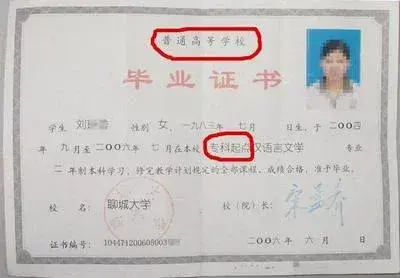 普通高等学校
毕业证书
学生 刘 性别 女, 一九八三年 七月 日生, 于二〇〇四
年 九月至二〇〇六年 七月在本校 专科起点汉语言文学 专业
二年制本科学习, 修完教学计划规定的全部课程, 成绩合格, 准予毕业。
校 名: 聊城大学 校(院)长:
证书编号: 104471200605003 二〇〇六年 六月 日